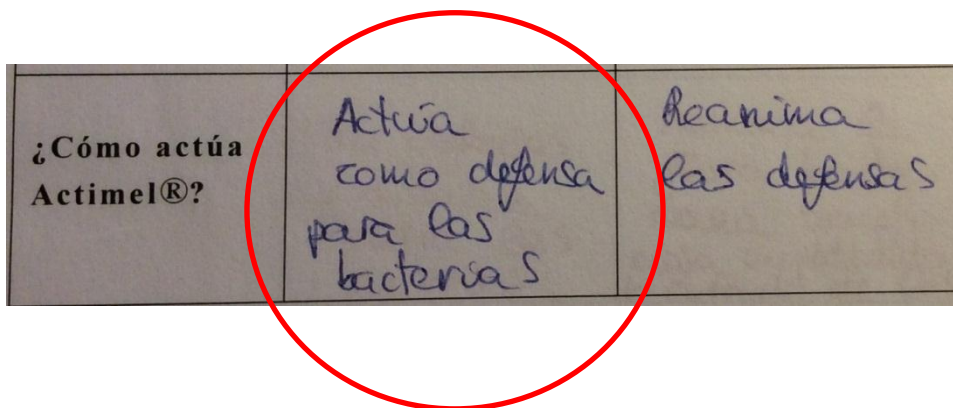 ¿Cómo actúa
Actimel®?
Actúa
como defensa
para las
bacterias
Reanima
las defensas